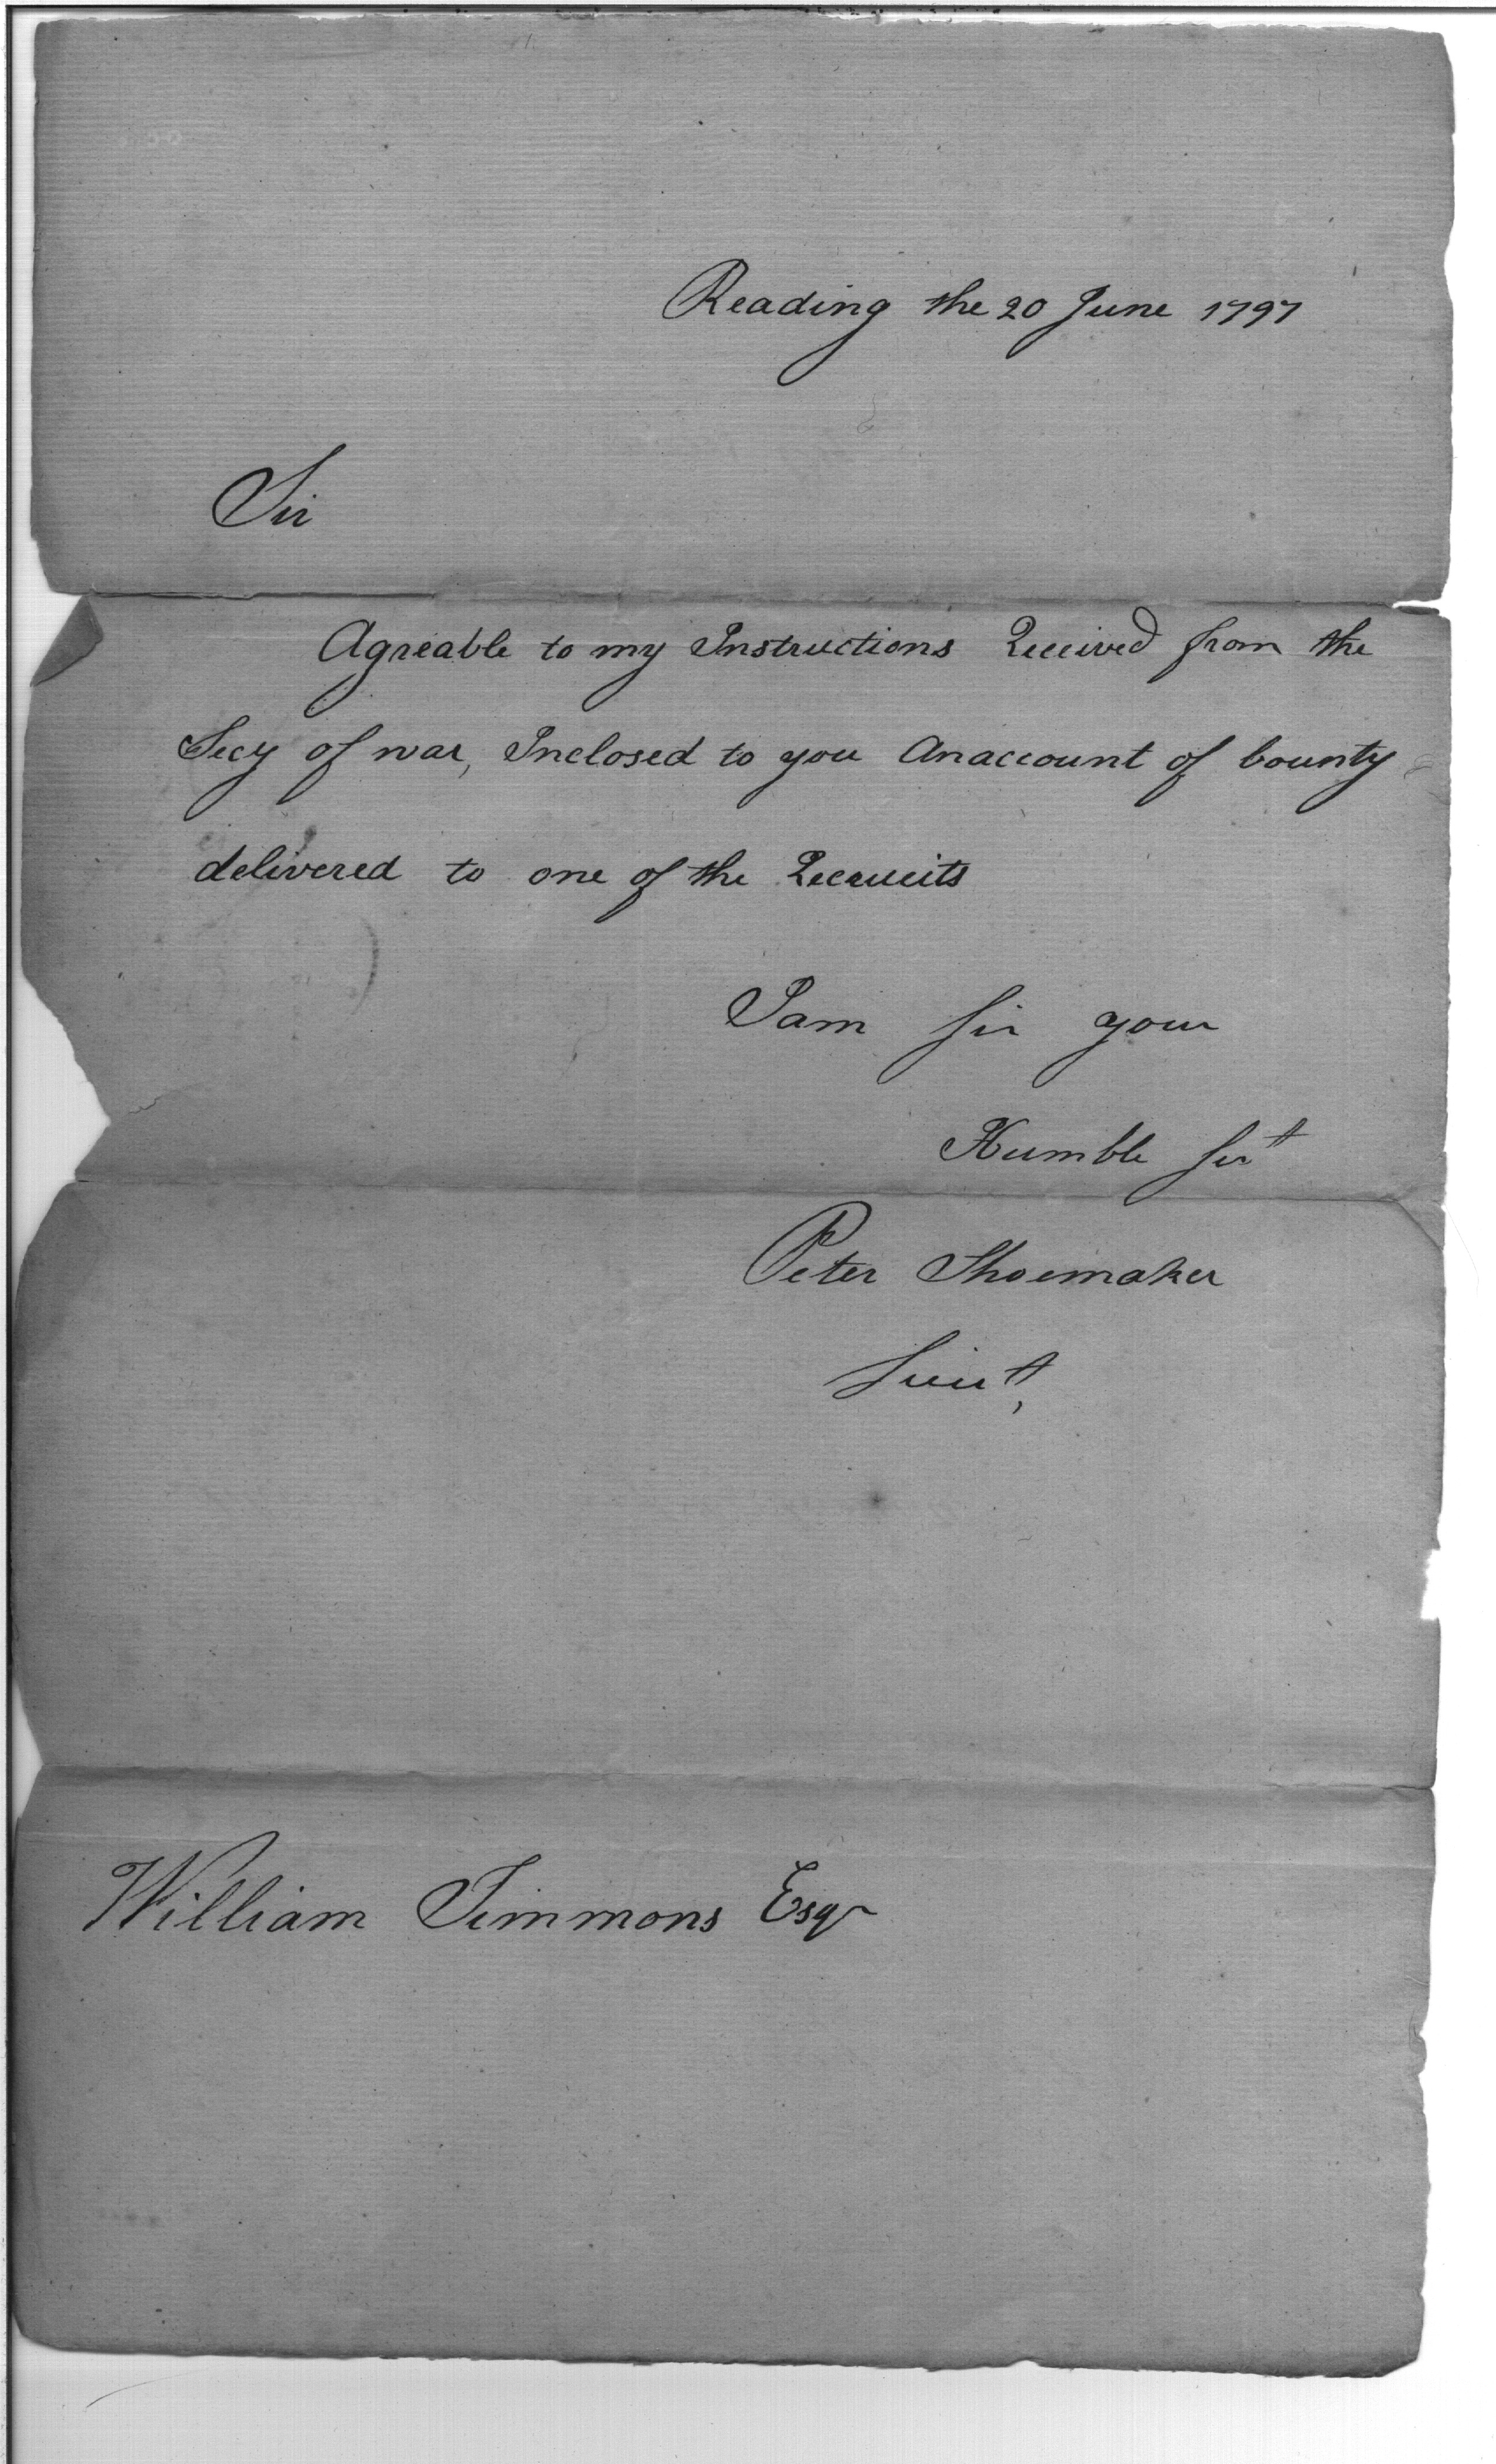 Reading the 20 June 1797
Sir
Agreable to my Instructions Received from the
Secy of war, Inclosed to you an account of bounty
delivered to one of the Recruits
I am Sir your
Humble Sert
Peter Shoemaker
Lieut,
William Simmons Esqr